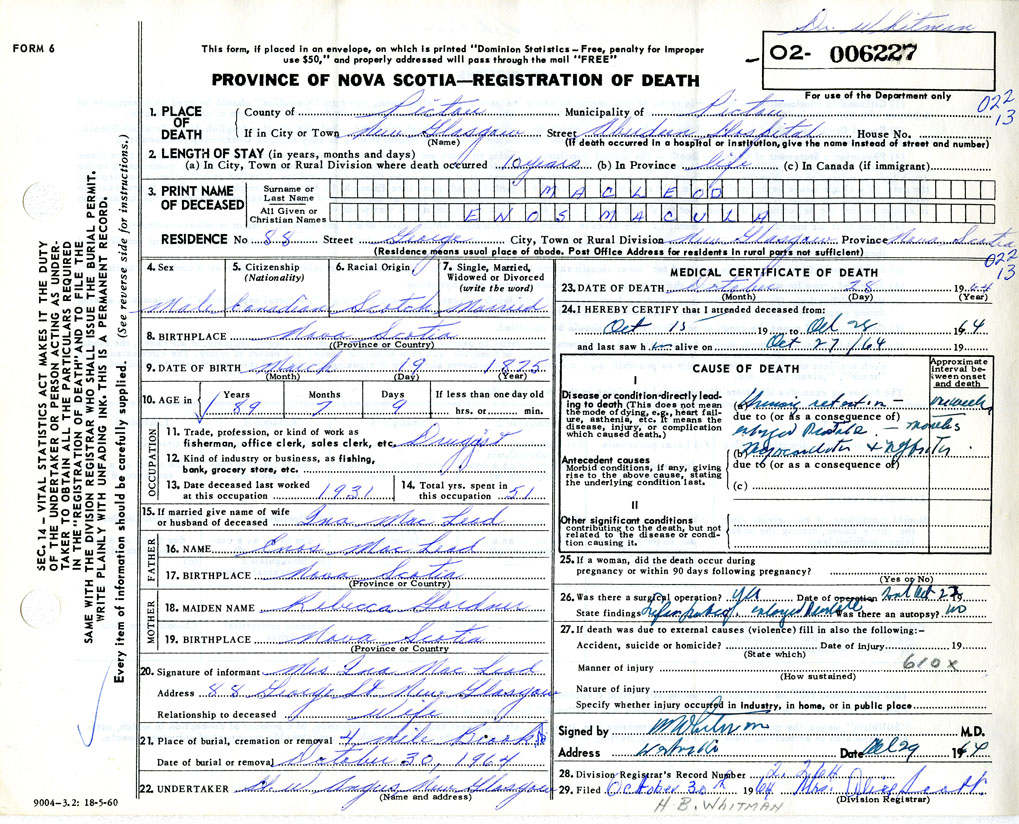 Dr. Whitman
FORM 6
This form, if placed in an envelope, on which is printed "Dominion Statistics – Free, penalty for improper
use $50," and properly addressed will pass through the mail "FREE"
02- 006227
PROVINCE OF NOVA SCOTIA—REGISTRATION OF DEATH
For use of the Department only
022
13
1. PLACE OF DEATH
County of Pictou Municipality of Pictou
If in City or Town New Glasgow Street Aberdeen Hospital House No.
(Name) (If death occurred in a hospital or institution, give the name instead of street and number)
2. LENGTH OF STAY (in years, months and days)
(a) In City, Town or Rural Division where death occurred 10 years (b) In Province life (c) In Canada (if immigrant)
3. PRINT NAME OF DECEASED
Surname or Last Name MACLEOD
All Given or Christian Names ENOS MACULA
RESIDENCE No 88 Street George City, Town or Rural Division New Glasgow Province Nova Scotia
(Residence means usual place of abode. Post Office Address for residents in rural parts not sufficient)
022
13
4. Sex
Male
5. Citizenship (Nationality)
Canadian
6. Racial Origin
Scotch
7. Single, Married, Widowed or Divorced (write the word)
Married
8. BIRTHPLACE Nova Scotia
(Province or Country)
9. DATE OF BIRTH March 19 1875
(Month) (Day) (Year)
10. AGE in Years Months Days If less than one day old
89 7 9 hrs. or min.
OCCUPATION
11. Trade, profession, or kind of work as
fisherman, office clerk, sales clerk, etc. Druggist
12. Kind of industry or business, as fishing,
bank, grocery store, etc.
13. Date deceased last worked
at this occupation 1931
14. Total yrs. spent in
this occupation 51
15. If married give name of wife
or husband of deceased Ina Mac Leod
FATHER
16. NAME Enos Mac Leod
17. BIRTHPLACE Nova Scotia
(Province or Country)
MOTHER
18. MAIDEN NAME Rebecca
19. BIRTHPLACE Nova Scotia
(Province or Country)
20. Signature of informant Mrs Ina Mac Leod
Address 88 George St New Glasgow
Relationship to deceased wife
21. Place of burial, cremation or removal 4 mile Brook
Date of burial or removal October 30, 1964
22. UNDERTAKER Angus New Glasgow
(Name and address)
9004-3.2: 18-5-60
MEDICAL CERTIFICATE OF DEATH
23. DATE OF DEATH October 28 1964
(Month) (Day) (Year)
24. I HEREBY CERTIFY that I attended deceased from:
Oct 15 19 to Oct 28 1964
and last saw h alive on Oct 27/64 19
CAUSE OF DEATH
Approximate interval between onset and death
I
Disease or condition directly leading to death (This does not mean
the mode of dying, e.g., heart failure, asthenia, etc. It means the
disease, injury, or complication
which caused death.)
(a)
due to (or as a consequence of)
enlarged Prostate – months
Antecedent causes
Morbid conditions, if any, giving
rise to the above cause, stating
the underlying condition last.
(b)
due to (or as a consequence of)
(c)
II
Other significant conditions
contributing to the death, but not
related to the disease or condition causing it.
25. If a woman, did the death occur during
pregnancy or within 90 days following pregnancy?
(Yes or No)
26. Was there a surgical operation? yes Date of operation Oct 27 19
State findings enlarged Prostate Was there an autopsy? no
27. If death was due to external causes (violence) fill in also the following:–
Accident, suicide or homicide? Date of injury 19
(State which)
610x
Manner of injury
(How sustained)
Nature of injury
Specify whether injury occurred in industry, in home, or in public place
Signed by M.D.
Address Westville Date Oct 29 1964
28. Division Registrar's Record Number
29. Filed October 30th 1964 Mrs. Olive Scott
(Division Registrar)
H B. WHITMAN
SEC. 14 – VITAL STATISTICS ACT MAKES IT THE DUTY
OF THE UNDERTAKER OR PERSON ACTING AS UNDERTAKER TO OBTAIN ALL THE PARTICULARS REQUIRED
IN THE "REGISTRATION OF DEATH" AND TO FILE THE
SAME WITH THE DIVISION REGISTRAR WHO SHALL ISSUE THE BURIAL PERMIT.
WRITE PLAINLY WITH UNFADING INK. THIS IS A PERMANENT RECORD.
Every item of information should be carefully supplied. (See reverse side for instructions.)